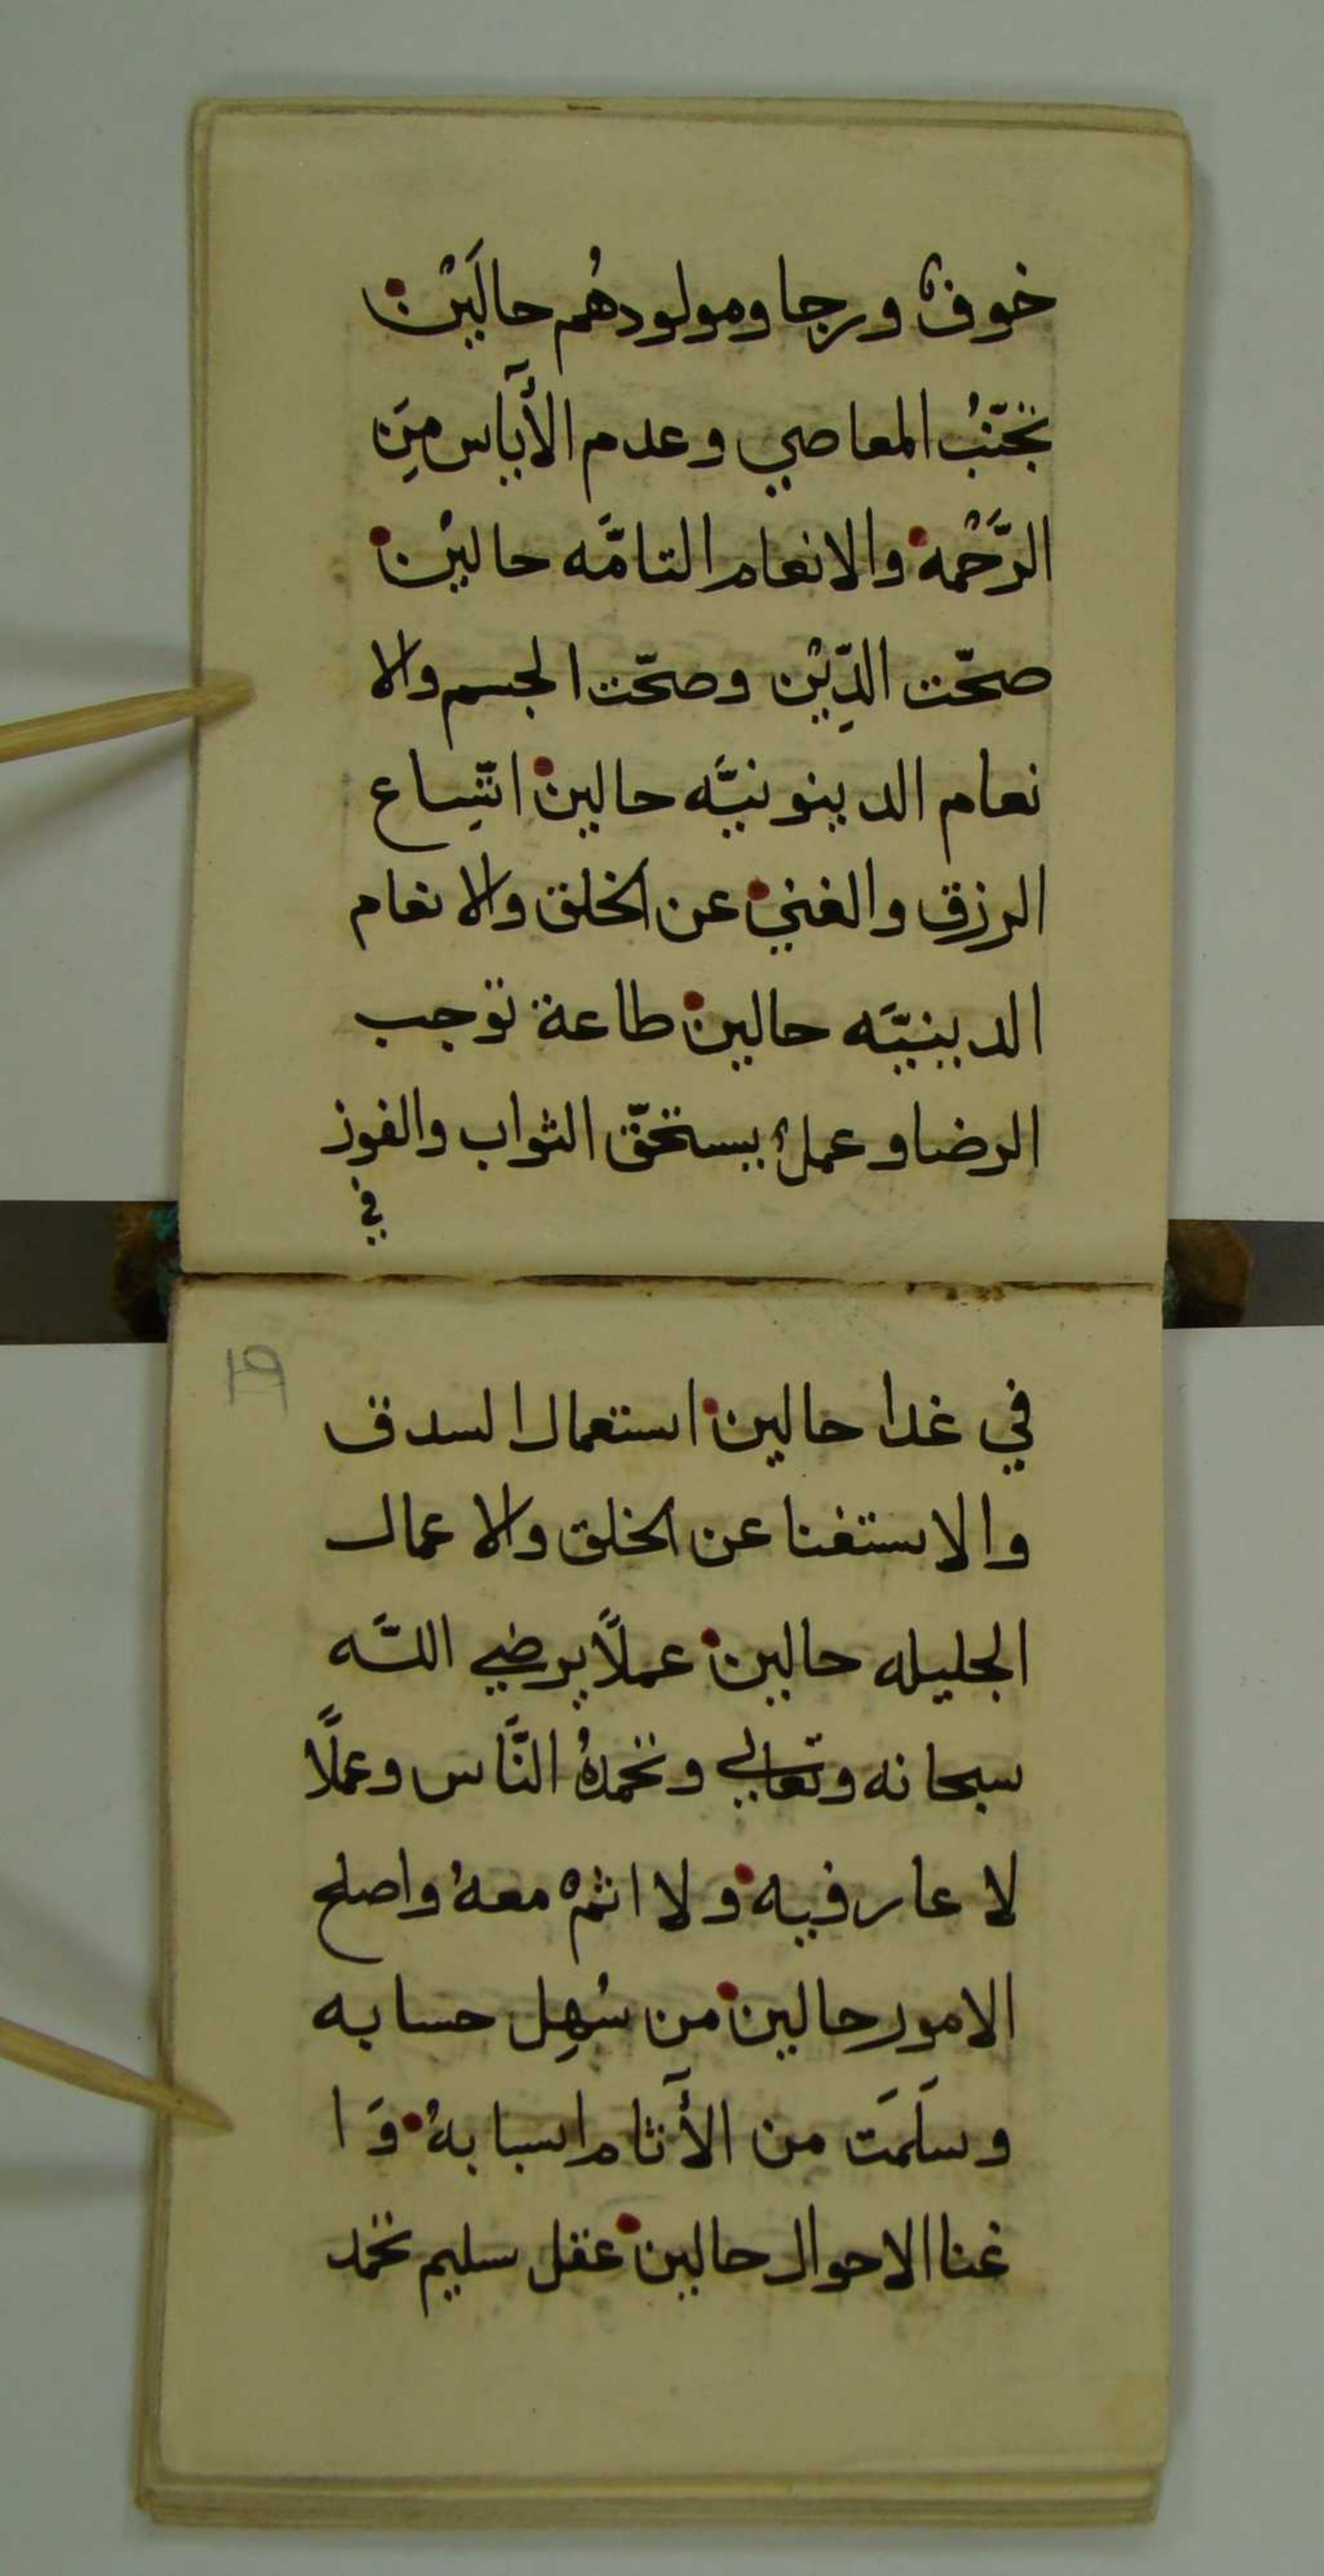 خوفٌ ورجا ومولودهُم حالَيْن
تجَنّبُ المعاصي وعدم الأَياس مِنَ
الرَّحْمه والانعام التامَّه حاليْن
صحّت الدِّيْن وصحّت الجسم والا
نعام الدينونيَّه حالين اتّسِاع
الرزق والغني عن الخلق والانعام
الدينيَّه حالين طاعة توجب
الرضا وعملٌ يستحقّ الثواب والفوز
في
19
في غدا حالين استعمال السدق
والاستغنا عن الخلق والاعمال
الجليله حالين عملًا يرضي اللَّه
سبحانه وتعالي وتحمدهُ النَّاس وعملًا
لا عار فيه ولا اثم معهُ واصلح
الامور حالين من سُهِل حسابه
وسلَمَت من الأَثام اسبابهُ وَا
غنا الاحوال حالين عقل سليم تحمد